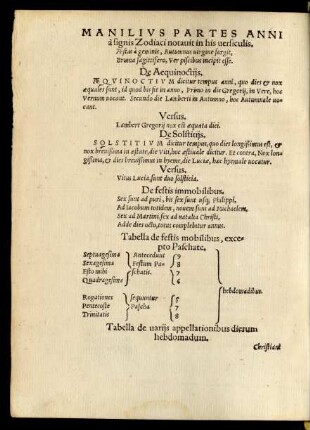 MANILIVS PARTES ANNI
à signis Zodiaci notauit in his versiculis.
Aestas à geminis, Autumnus virgine surgit,
Bruma sagittifero, Ver piscibus incipit esse.
De Aequinoctijs.
AEQVINOCTIVM dicitur tempus anni, quo dies & nox
aequales sunt, id quod bis fit in anno, Primo in die Gregorij, in Vere, hoc
Vernum vocant. Secundo die Lamberti in Autumno, hoc Autumnale vo-
cant.
Versus.
Lambert Gregorij nox est aequata diei.
De Solstitijs.
SOLSTITIVM dicitur tempus, quo dies longissimus est, &
nox breuissima in aestate, die Viti, hoc aestiuale dicitur. Et contra, Nox lon-
gissima, & dies breuissimus in hyeme, die Luciae, hoc hyemale vocatur.
Versus.
Vitus Lucia, sunt duo solstitia.
De festis immobilibus.
Sex sunt ad puri, bis sex sunt usq; Philippi,
Ad Iacobum totidem, nouem sunt ad Michaelem,
Sex ad Martini, sex ad natalia Christi,
Adde dies octo, totus complebitur annus.
Tabella de festis mobilibus, exce-
pto Paschate.
Septuagesima Antecedunt 9
Sexagesima Festum Pa- 8
Esto mihi schatis. 7
Quadragesima 6
hebdomadibus.
Rogationes sequuntur 5
Pentecoste Pascha 7
Trinitatis 8
Tabella de uarijs appellationibus dierum
hebdomadum.
Christiani